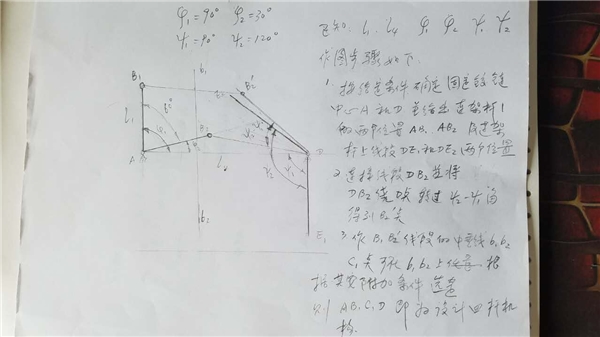 φ₁=90° φ₂=30°
ψ₁=90° ψ₂=120°
已知. l₁. l₄ φ₁ φ₂ ψ₁ ψ₂
作图步骤如下.
1 按给定条件确定固定铰链
中心A和D 并给出连架杆1
的两个位置AB₁ AB₂ 及连架
杆上线段DE₁和DE₂两个位置
2 连接线段DB₂并将
DB₂绕D点转过ψ₂-ψ₁角
得到B₂'点
3 作B₁B₂'线段的中垂线b₁b₂
C₁点可在b₁b₂上任意 根
据其它附加条件选定
则 AB₁C₁D 即为设计四杆机
构.
B₁
B₂'
b₁
l₁
B₂
A
l₄
D
ψ₂
b₂
E₁